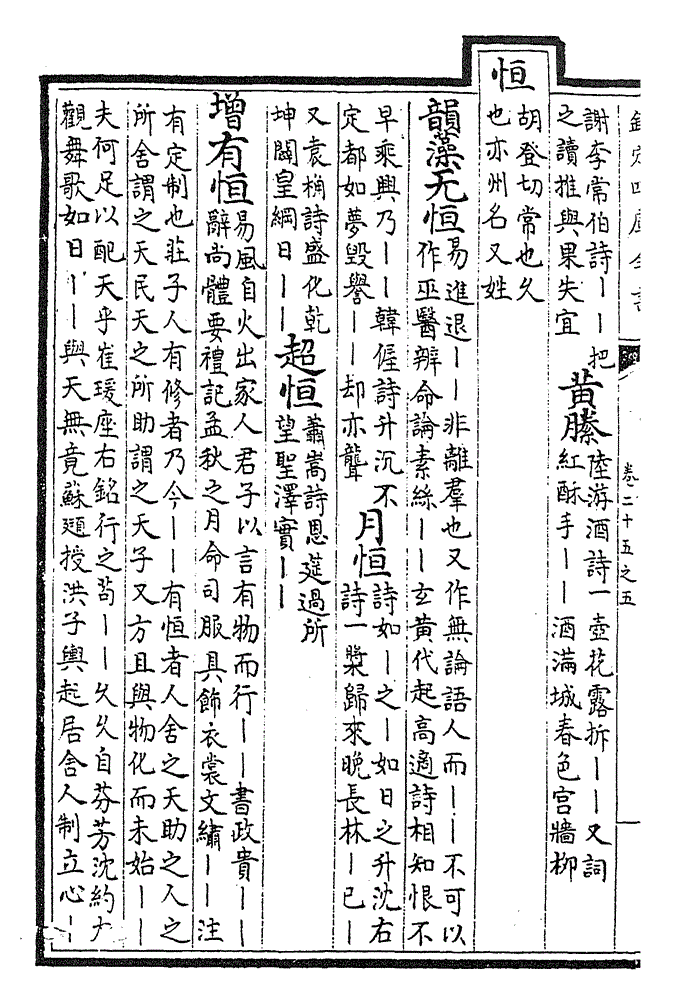 欽定四庫全書
卷二十五之五
謝李常伯詩丨丨把
之讀推與果失宜
黃縢
陸游酒詩一壺花露拆丨丨又詞
紅酥手丨丨酒滿城春色宮牆柳
恒
胡登切常也久
也亦州名又姓
韻藻无恒
易進退丨丨非離羣也又作無論語人而丨丨不可以
作巫醫辨命論素絲丨丨玄黃代起高適詩相知恨不
早乘興乃丨丨韓偓詩升沉不
定都如夢毀譽丨丨却亦聾
月恒
詩如丨之丨如日之升沈右
詩一槳歸來晚長林丨已丨
又袁桷詩盛化乾
坤闢皇綱日丨丨
超恒
蕭嵩詩恩筵過所
望聖澤實丨丨
增有恒
易風自火出家人君子以言有物而行丨丨書政貴丨丨
辭尚體要禮記孟秋之月命司服具飾衣裳文繡丨丨注
有定制也莊子人有修者乃今丨丨有恒者人舍之天助之人之
所舍謂之天民天之所助謂之天子又方且與物化而未始丨丨
夫何足以配天乎崔瑗座右銘行之苟丨丨久久自芬芳沈約大
觀舞歌如日丨丨與天無竟蘇頲授洪子輿起居舍人制立心丨